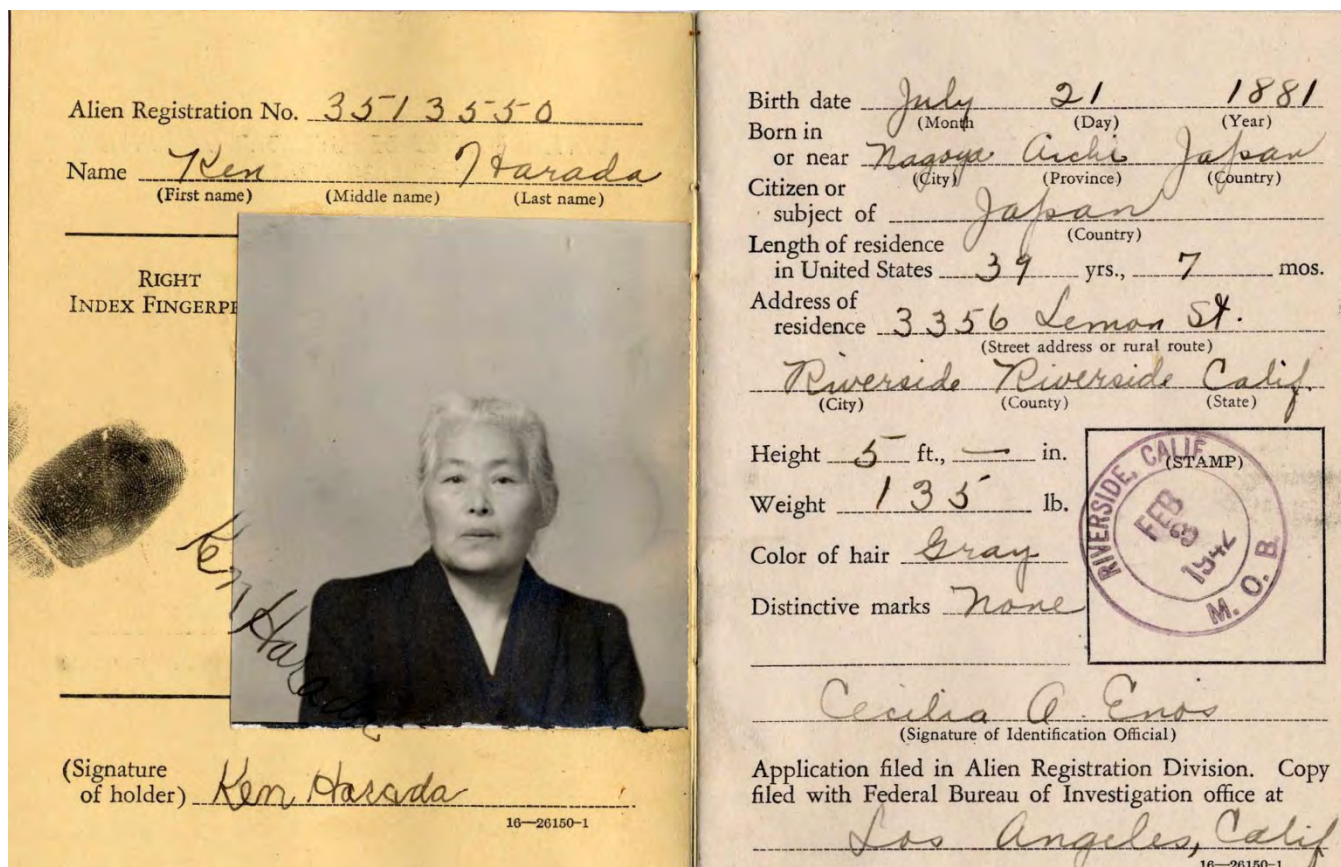 Alien Registration No. 3513550
Name Ken Harada
(First name) (Middle name) (Last name)
RIGHT
INDEX FINGERP
Ken Harada
(Signature
of holder) Ken Harada
16—26150-1
Birth date July 21 1881
(Month (Day) (Year)
Born in
or near Nagoya Aichi Japan
(City) (Province) (Country)
Citizen or
subject of Japan
(Country)
Length of residence
in United States 39 yrs., 7 mos.
Address of
residence 3356 Lemon St.
(Street address or rural route)
Riverside Riverside Calif.
(City) (County) (State)
Height 5 ft., — in.
Weight 135 lb.
Color of hair Gray
Distinctive marks None
(STAMP)
RIVERSIDE, CALIF
FEB
1942
M. O. B.
Cecilia A. Enos
(Signature of Identification Official)
Application filed in Alien Registration Division. Copy
filed with Federal Bureau of Investigation office at
Los Angeles, Calif
16—26150-1